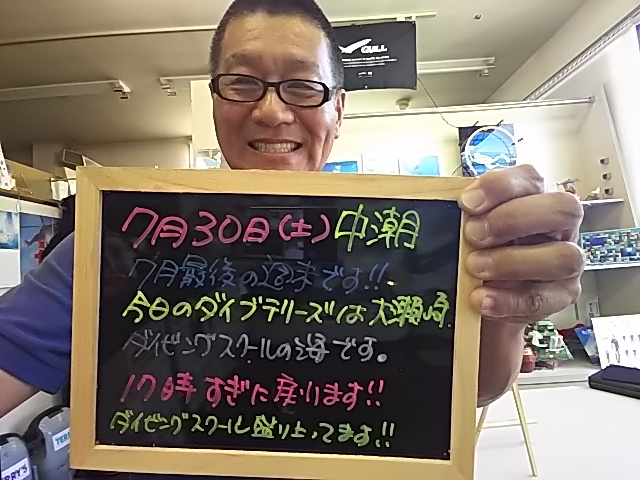 GULL
7月30日(土)中潮
7月最後の週末です!!
今日のダイブテリーズは大瀬崎
ダイビングスクールの海です。
17時すぎに戻ります!!
ダイビングスクール盛り上ってます!!
TERRY'S